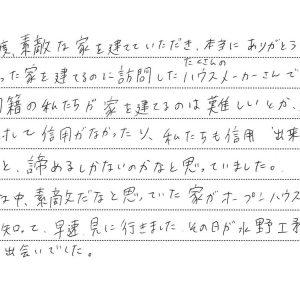 素敵な家を建てていただき、本当にありがとう
った家を建てるのに訪問したたくさんのハウスメーカーさんで
国籍の私たちが家を建てるのは難しいとか、
して信用がなかったり、私たちも信用 出来
と、諦めるしかないのかなと思っていました。
な中、素敵だなと思っていた家がオープンハウス
知って、早速見に行きました。その日が水野工務
出会いでした。